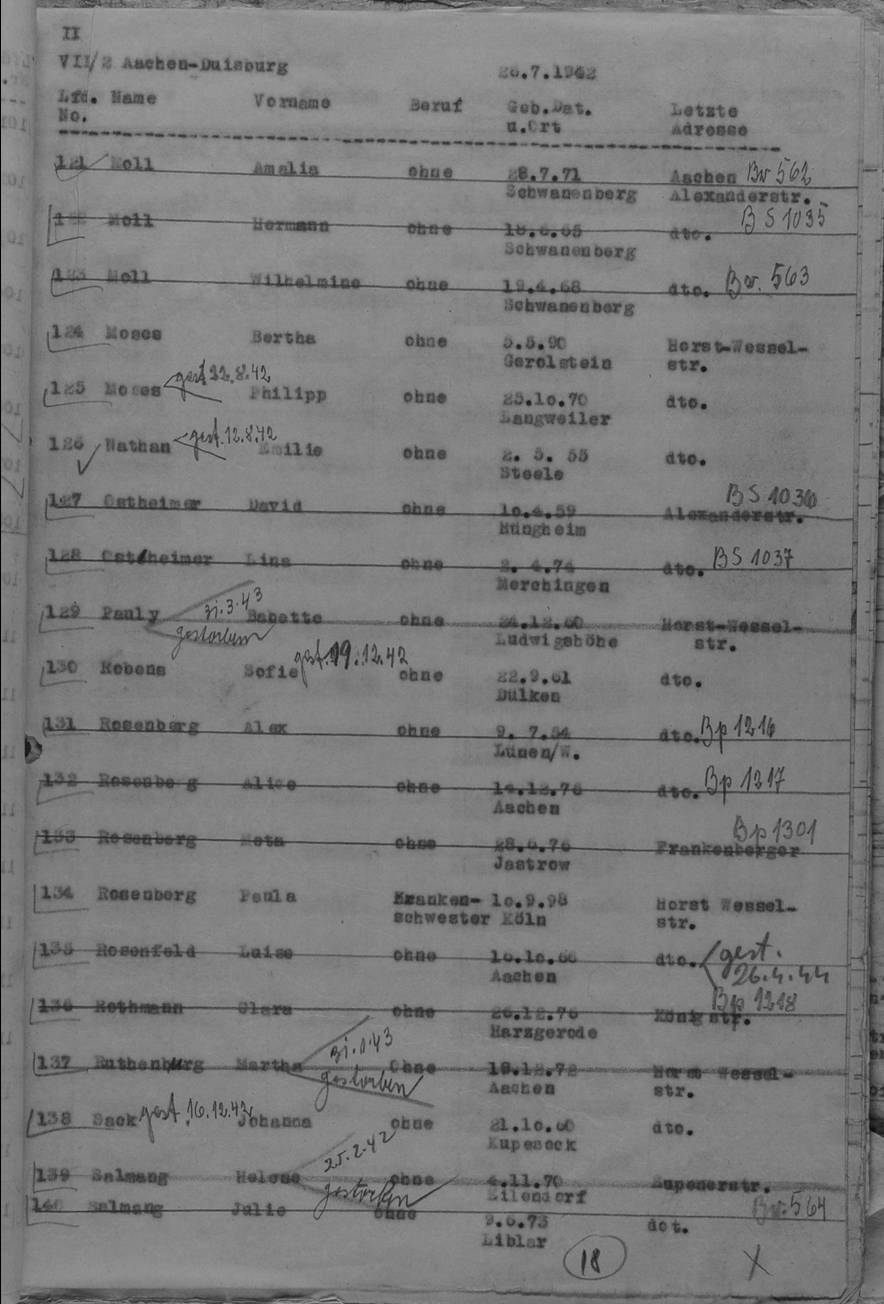 II
VII/2 Aachen-Duisburg 26.7.1942
Lfd. Name Vorname Beruf Geb.Dat. Letzte
No. u.Ort Adresse
121 Moll Amalia ohne 28.7.71 Aachen Bv 562
Schwanenberg Alexanderstr.
Moll Hermann ohne Schwanenberg dto. BS 1035
123 Moll Wilhelmine ohne 19.4.68 dto. Bv. 563
Schwanenberg
124 Moses Bertha ohne 5.5.90 Horst-Wessel-
Gerolstein str.
gest 22.8.42
125 Moses Philipp ohne 25.10.70 dto.
Langweiler
gest. 12.8.42
126 Nathan Emilie ohne 2. 5. 55 dto.
Steele
BS 1036
127 Ostheimer David ohne Alexanderstr.
Hüngheim
128 Ostheimer Lina ohne 2. 4.74 dto. BS 1037
Merchingen
3.43
129 Pauly Babette ohne 24.12.60 Horst-Wessel-
gestorben Ludwigshöhe str.
130 Robens Sofie gest. 19.12.42 ohne 22.9.61 dto.
Dülken
131 Rosenberg Alex ohne 9. 7.54 dto. Bp 1216
Lünen/W.
132 Rosenbe g Alice ohne 14.12.76 dto. Bp 1217
Aachen
Bp 1301
133 Rosenberg Meta ohne 28.6.76 Frankenberger
Jastrow
134 Rosenberg Paula Kranken- 10.9.98 Horst Wessel-
schwester Köln str.
135 Rosenfeld Luise ohne 16.10.66 dto. gest.
Aachen 26.4.44
Bp 1218
136 Rothmann Clara ohne 26.12.76 König str.
Harzgerode
1.43
137 Ruthenburg Martha Ohne 19.12.72 Horst Wessel-
gestorben Aachen str.
138 Sack gest. 16.12.42 Johanna ohne 21.10.60 dto.
25.2.42
139 Salmang Helene ohne 4.11.70 Eupenerstr.
gestorben Eilendorf
140 Salmang Julie ohne 9.6.73 dot. Bv. 564
Liblar
18 X